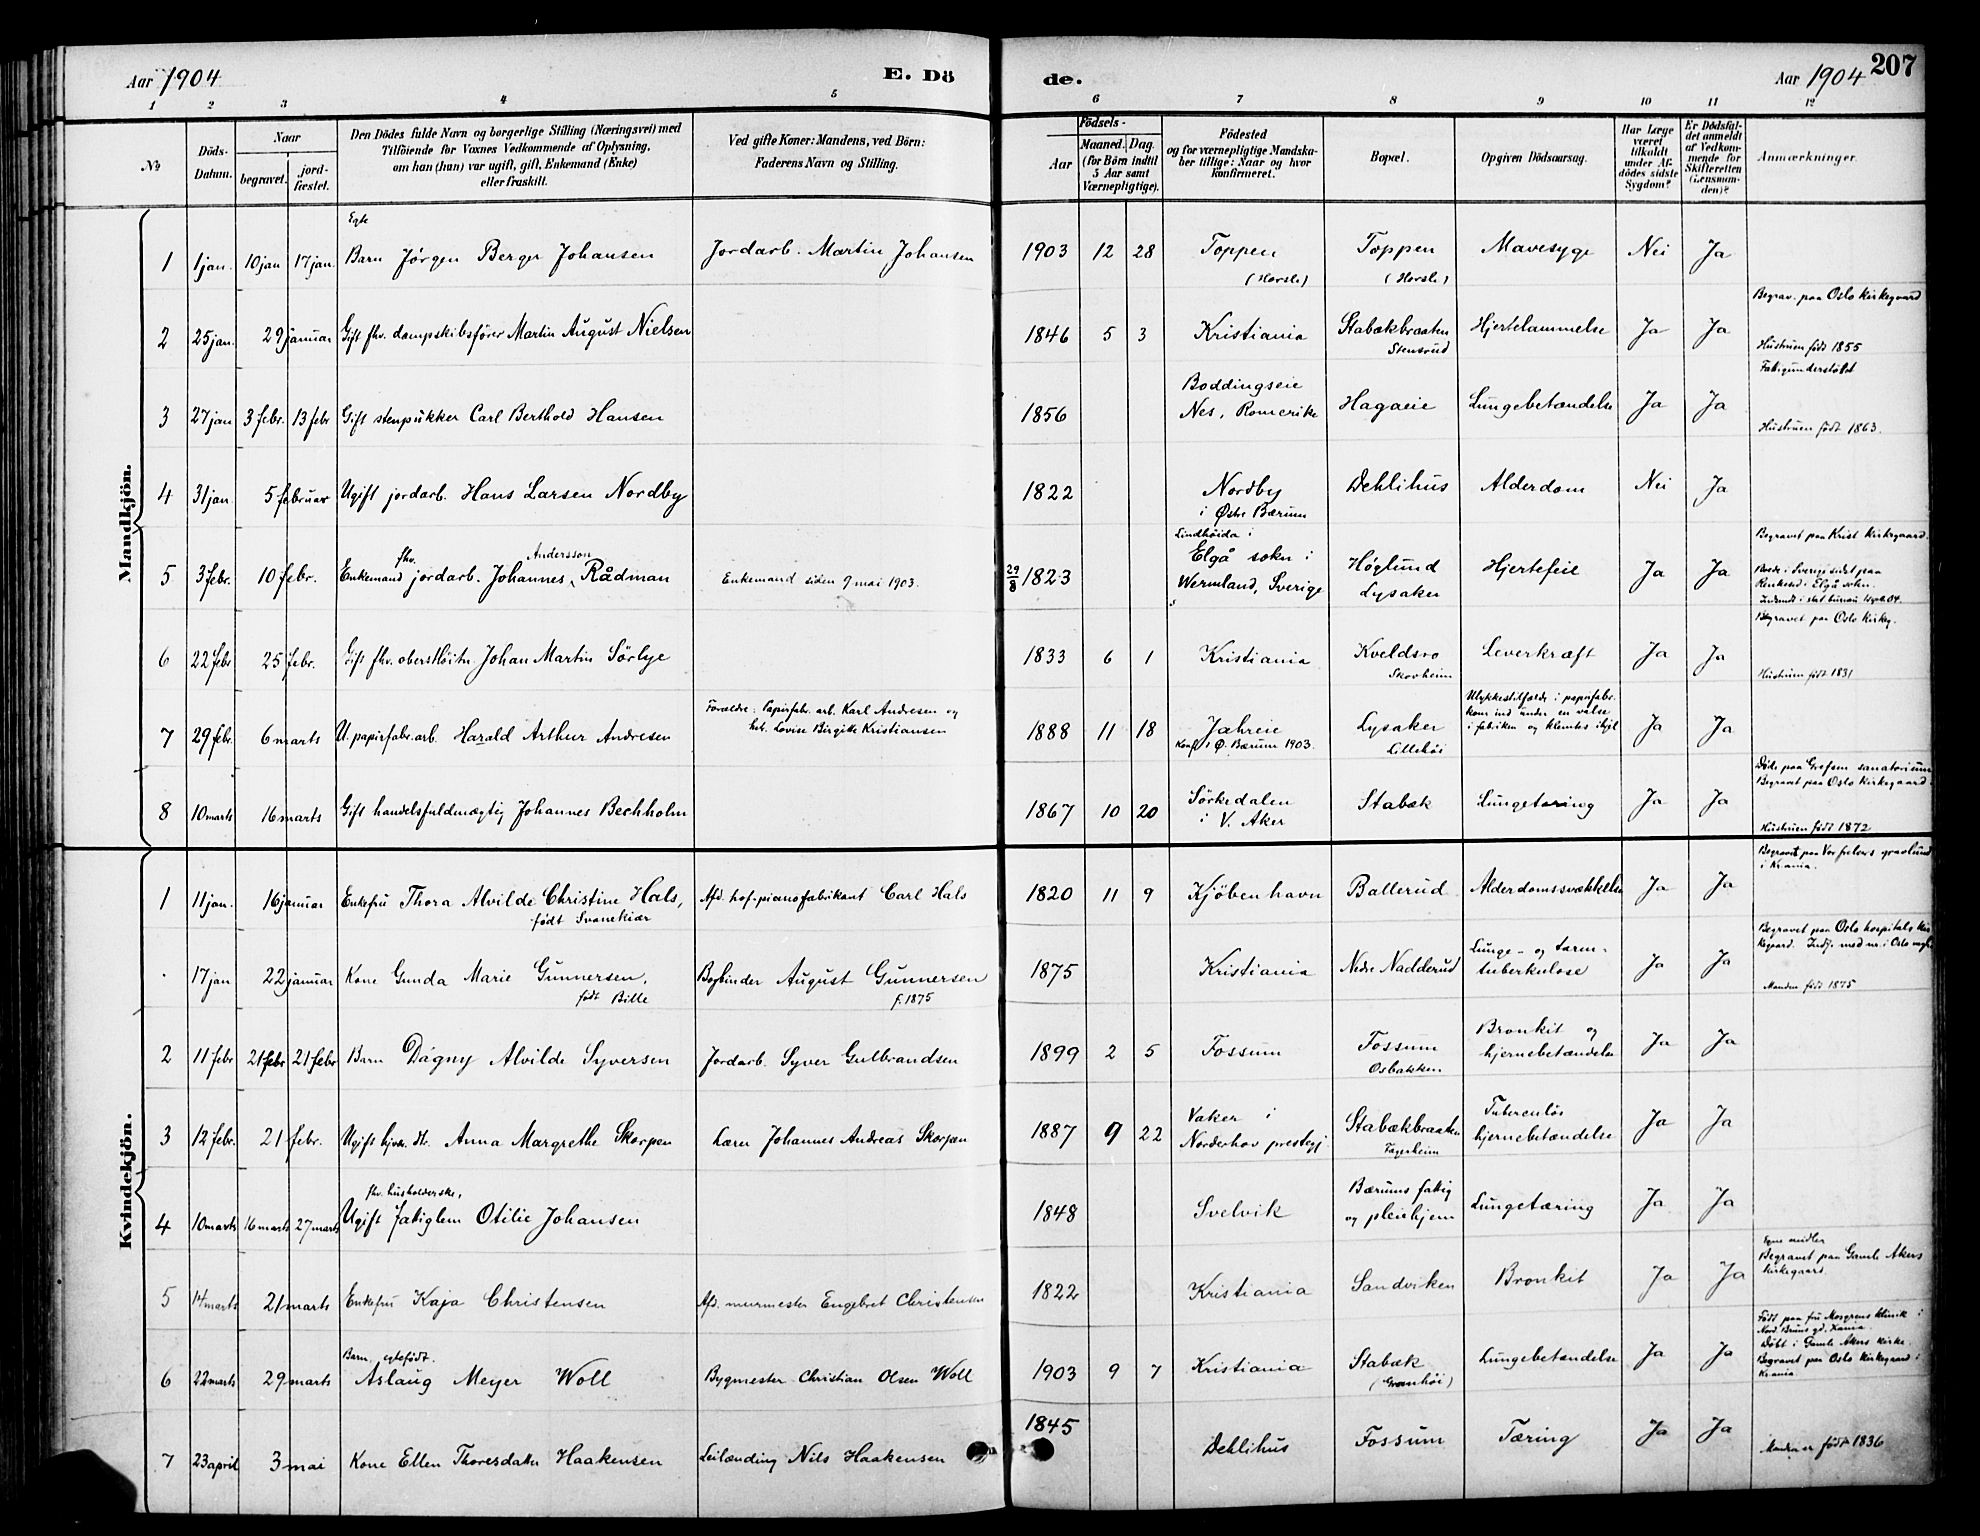 Aar 1904
E. Dö
de.
Aar 1904
207
1 2 3 4 5 6 7 8 9 10 11 12
No
Döds-Datum.
Naar
begravet.
jord-fæstet.
Den Dödes fulde Navn og borgerlige Stilling (Næringsvei) med
Tilföiende for Voxnes Vedkommende af Oplysning,
om han (hun) var ugift, gift, Enkemand (Enke)
eller fraskilt.
Ved gifte Koner: Mandens, ved Börn:
Faderens Navn og Stilling.
Födsels-
Aar
Maaned. Dag.
(for Börn indtil
5 Aar samt
Værnepligtige).
Födested
og for værnepligtige Mandska-
ber tillige: Naar og hvor
konfirmeret.
Bopæl.
Opgiven Dödsaarsag.
Har Læge
været
tilkaldt
under Af-
dödes sidste
Sygdom?
Er Dödsfal-
det anmeldt
af Vedkom-
mende for
Skifteretten
(Lensman-
den)?
Anmærkninger.
Mandkjön.
Egte
1 1 jan. 10 jan 17 jan. Barn Jørgen Berger Johansen Jordarb. Martin Johansen 1903 12 28 Toppen Toppen Mavesyge Nei Ja
(Horsle) (Horsle)
Begrav. paa Oslo kirkegaard
2 25 jan. 29 januar Gift fhv. dampskibsfører Martin August Nielsen 1846 5 3 Kristiania Stabækbraaten Hjertelammelse Ja Ja
Stensrud
Hustruen født 1855
Fattigunderstøttet
Boddingseie
3 27 jan 3 febr. 13 febr Gift stenpukker Carl Berthold Hansen 1856 Nes, Romerike Hagaeie Lungebetændelse Ja Ja
Hustruen født 1863.
4 31 jan. 5 februar Ugift jordarb. Hans Larsen Nordby 1822 Nordby Dehlihus Alderdom Nei Ja
i Østre Bærum
Begravet paa Krist kirkegaard.
Lindhöida i
fhv. Andersson
5 3 febr. 10 febr. Enkemand jordarb. Johannes Rådman Enkemand siden 9 mai 1903. 29/8 1823 Elgå sokn i Høglund Hjertefeil Ja Ja
Wermland, Sverige Lysaker
i Elgå sokn.
Begravet paa Oslo kirkeg.
6 22 febr 25 febr. Gift fhv. oberstløitn. Johan Martin Sörlye 1833 6 1 Kristiania Kveldsro Leverkræft Ja Ja
Skovheim
Hustruen født 1831
Forældre: Papirfabr. arb. Karl Andresen og
hst. Lovise Birgitte Kristiansen
7 29 febr. 6 marts U. papirfabr. arb. Harald Arthur Andresen 1888 11 18 Jahreie Lysaker Ja Ja
Konf. i Ø. Bærum 1903. Lillehöi
Ulykkestilfælde i papirfabr.
kom ind under en valse
i fabriken og klemtes ihjel
Døde paa Grefsen sanatorium
Begravet paa Oslo kirkegaard.
8 10 marts 16 marts Gift handelsfuldmægtig Johannes Bechholm 1867 10 20 Sörkedalen Stabæk Lungetæring Ja Ja
i V. Aker
Hustruen født 1872
Kvindekjön.
Begravet paa Vor frelsers gravlund
i Krania.
1 11 jan. 16 januar Enkefru Thora Alvilde Christine Hals, Afd. hof-pianofabrikant Carl Hals 1820 11 9 Kjöbenhavn Ballerud Alderdomssvækkelse Ja Ja
født Svanekiær
Begravet paa Oslo hospitals kir-
kegaard.
17 jan 22 januar Kone Gunda Marie Gunnersen, Bogbinder August Gunnersen 1875 Kristiania Nedre Nadderud Lunge- og tarm-tuberkulose Ja Ja
født Bille f. 1875
Manden født 1875
2 11 febr 21 febr 21 febr Barn Dagny Alvilde Syversen Jordarb. Syver Gulbrandsen 1899 2 5 Fossum Fossum Bronkit og hjernebetændelse Ja Ja
Osbakken
3 12 febr. 21 febr. Ugift hjem. dtr. Anna Margrethe Skorpen Lærer Johannes Andreas Skorpen 1887 9 22 Vaker i Norderhov prestegj. Stabækbraaten Tuberculøs hjernebetændelse Ja Ja
Fagerheim
fhv. husholderske,
4 10 marts 16 marts 27 marts Ugift fattiglem Otilie Johansen 1848 Svelvik Bærums fattig og pleiehjem Lungetæring Ja Ja
Egne midler
Begravet paa Gamle Akers
kirkegaard.
5 14 marts 21 marts Enkefru Kaja Christensen Afd. murmester Engebret Christensen 1822 Kristiania Sandviken Bronkit Ja Ja
Barn, egtefødt.
Født paa fru Mosgrens klinik i
Nord Bruns gd. Krania.
Døbt i Gamle Akers kirke.
Begravet paa Oslo kirkegaard i
Krania.
6 22 marts 29 marts Aslaug Meyer Woll Bygmester Christian Olsen Woll 1903 9 7 Kristiania Stabæk Lungebetændelse Ja Ja
(Granhöi)
7 23 april 3 mai Kone Ellen Thoresdatter Haakensen Leilænding Nils Haakensen 1845 Dehlihus Fossum Tæring Ja Ja
Manden er født 1836